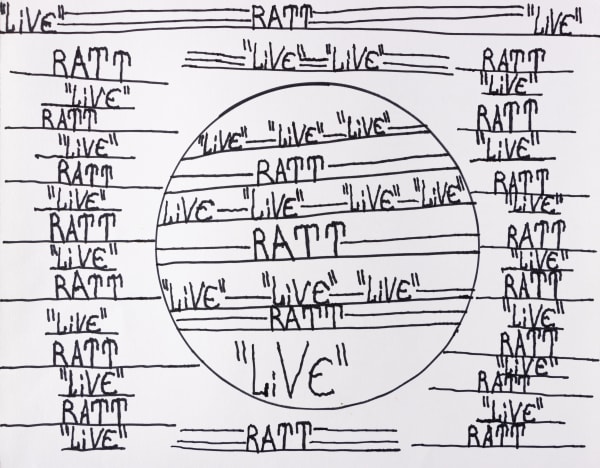 "LiVE" RATT "LiVE"
"LiVE" — "LiVE"
RATT
"LiVE"
RATT
"LiVE"
RATT
"LiVE"
RATT
"LiVE"
RATT
"LiVE"
RATT
"LiVE"
RATT
"LiVE"
"LiVE" — "LiVE" — "LiVE"
RATT
LiVE — "LiVE" — "LiVE" — "LiVE"
RATT
"LiVE" — "LiVE" — "LiVE"
RATT
"LiVE"
RATT
RATT
"LiVE"
RATT
"LiVE"
RATT
"LiVE"
RATT
"LiVE"
RATT
"LiVE"
RATT
"LiVE"
RATT
"LiVE"
RATT